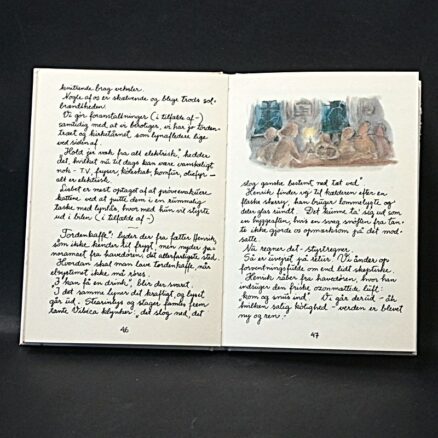 knitrende brag veksler.
Nogle af os er skælvende og blege trods sol-
brændtheden.
Vi gør foranstaltninger (i tilfælde af -)
samtidig med at vi beroliges, vi har jo torden-
træet og kirketårnet, som lynafledere lige
ved siden af.
"Hold jer væk fra alt elektrisk", hedder
det, hvilket nu til dags kan være vanskeligt
nok - TV, fryser, køleskab, komfur, oliefyr -
alt er elektrisk.
Lisbet er mest optaget af at prøveevakuere
kattene ved at putte dem i en rummelig
taske med lynlås, hvor med hun vil styrte
ud i bilen (i tilfælde af -)
"Tordenkaffe"! lyder der fra fætter Henrik,
som ikke kender til frygt, men nyder pa-
noramaet fra havedøren det allerfarligste sted.
Hvordan skal man lave tordenkaffe, når
elsystemet ikke må røres.
"I kan få en drink", blir der svart.
I det samme lyner det kraftigt, og lyset
går ud. Stearinlys og slager famles frem
tante Vibeca klynker: "det slog ned, det
46
slog ganske bestemt ned tæt ved"
Henrik finder vej til kælderen efter en
flaske sherry, han bruger lommelygte og
deler glas rundt. Det kunne ta' sig ud som
en hyggeaften, hvis en svag snøften fra Tan-
te ikke gjorde os opmærksom på det mod-
satte.
Nu regner det - styrtregner
Så er uvejret på retur! Vi ånder op
forventningsfulde om end lidt skeptiske.
Henrik råber fra havedøren, hvor han
indsuger den friske ozonmættede luft:
"kom og snus ind". Vi går derud - åh
hvilken salig kølighed - verden er blevet
ny og ren.
47